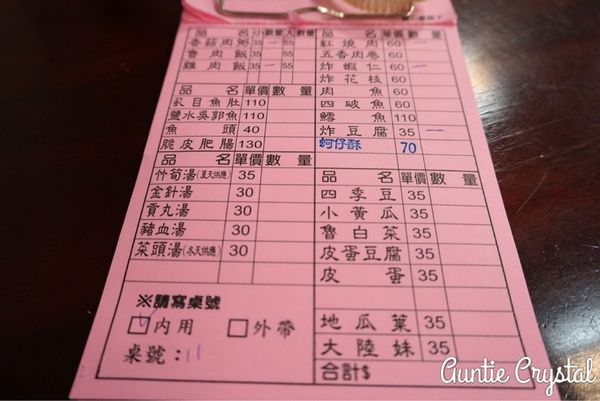 品 名 小 數量 大 數量
香菇肉粥 35 一 55
魯肉飯 35 55
雞肉飯 35 一 55
品 名 單價 數 量
虱目魚肚 110
鹽水吳郭魚 110
魚 頭 40
脆皮肥腸 130
品 名 單價 數 量
竹筍湯(夏天供應) 35
金針湯 30
貢丸湯 30
豬血湯 30
菜頭湯(冬天供應) 30
※請寫桌號
內用 外帶
桌號: 11
品 名 單價 數 量
紅燒肉 60 一
五香肉卷 60
炸蝦仁 60 一
炸花枝 60
肉 魚
四破魚
鱈 魚 110
炸豆腐 35 一
蚵仔酥 70
品 名 單價 數 量
四季豆 35
小黃瓜 35
魯白菜 35
皮蛋豆腐 35
皮 蛋 35
地瓜葉 35
大陸妹 35
合計$
Auntie Crystal